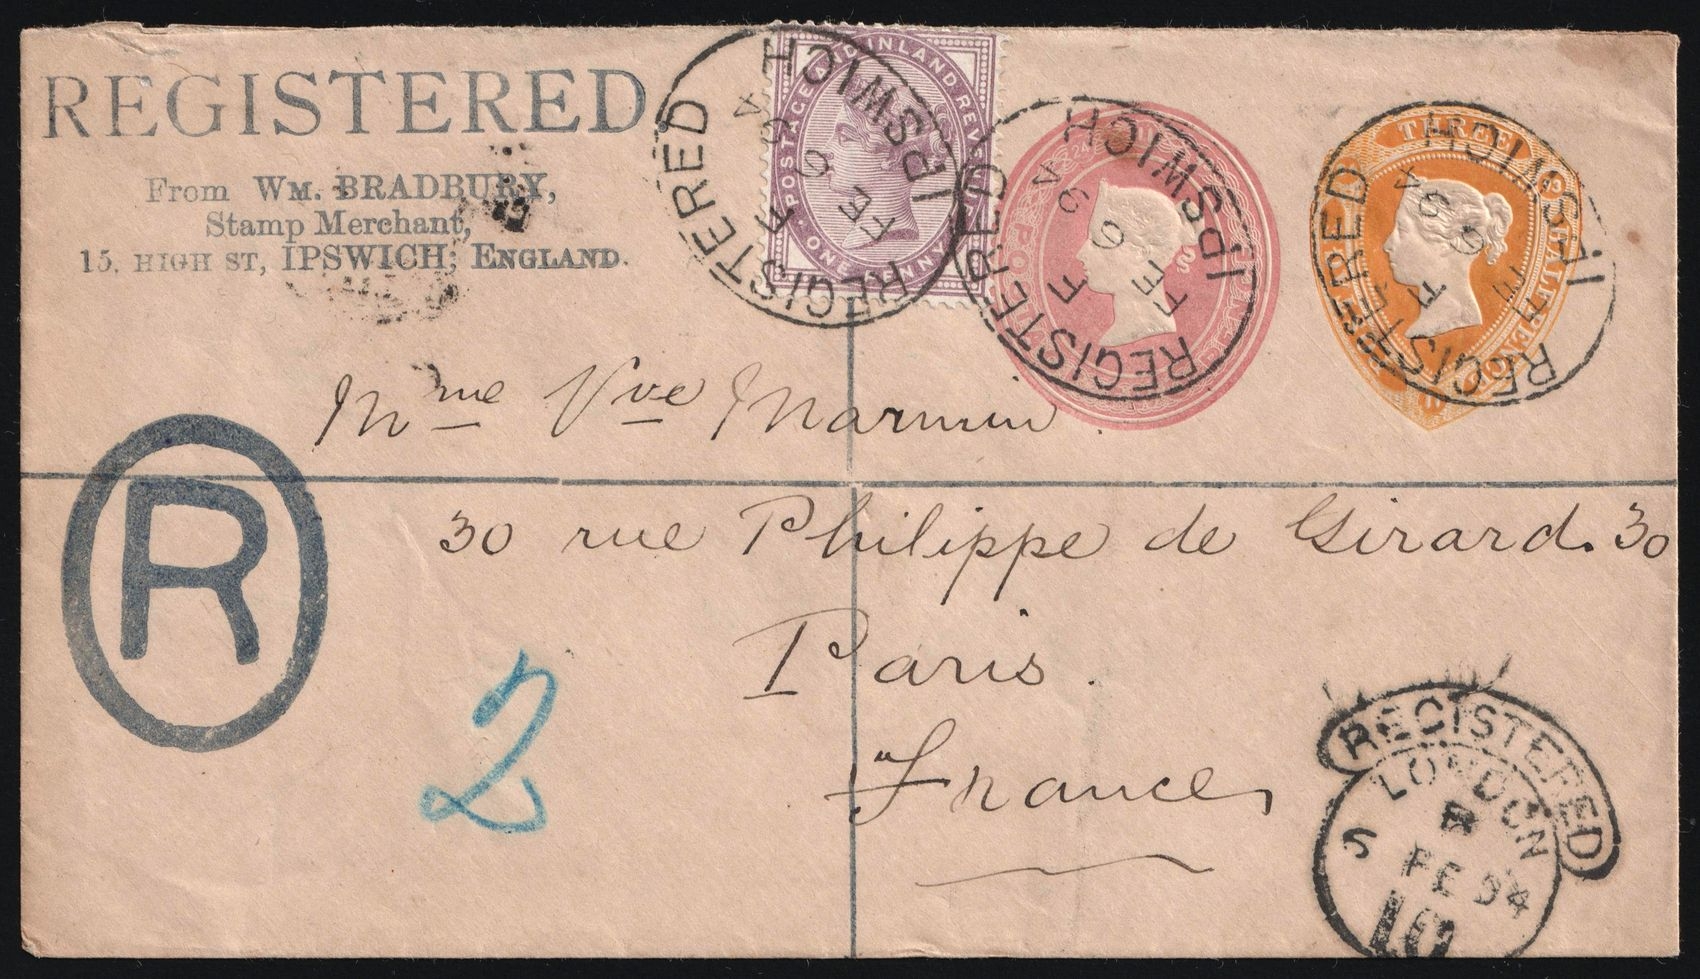 REGISTERED
From WM. BRADBURY,
Stamp Merchant,
15, HIGH ST, IPSWICH, ENGLAND.
POSTAGE AND INLAND REVENUE
ONE PENNY
REGISTERED IPSWICH
F
FE 9
94
REGISTERED IPSWICH
F
FE 9
94
THREE HALF PENCE
REGISTERED IPSWICH
F
FE 9
94
Mme Vve Marmin
R
30 rue Philippe de Girard. 30
Paris.
France
2
REGISTERED
LONDON
FE 94
10